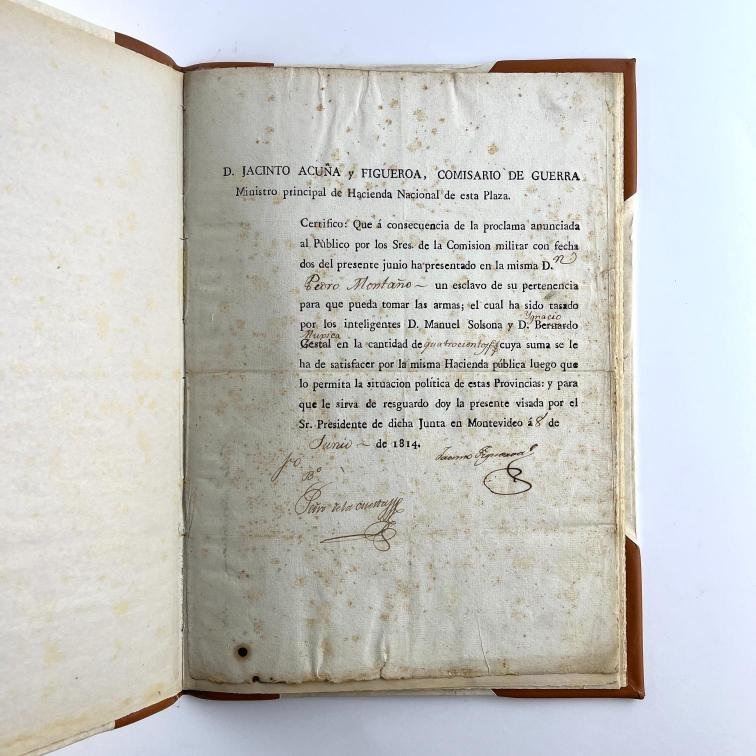 D. JACINTO ACUÑA y FIGUEROA, COMISARIO DE GUERRA
Ministro principal de Hacienda Nacional de esta Plaza.
Certifico: Que á consecuencia de la proclama anunciada
al Público por los Sres. de la Comision militar con fecha
dos del presente junio ha presentado en la misma D.n
Pedro Montaño un esclavo de su pertenencia
para que pueda tomar las armas; el cual ha sido tasado
Ygnacio
por los inteligentes D. Manuel Solsona y D. Bernardo
Muxica
Gestal en la cantidad de quatrocientos cuya suma se le
ha de satisfacer por la misma Hacienda pública luego que
lo permita la situacion política de estas Provincias: y para
que le sirva de resguardo doy la presente visada por el
Sr. Presidente de dicha Junta en Montevideo á 8 de
Junio de 1814.
Jacinto Figueroa
Bº
de la Cuesta